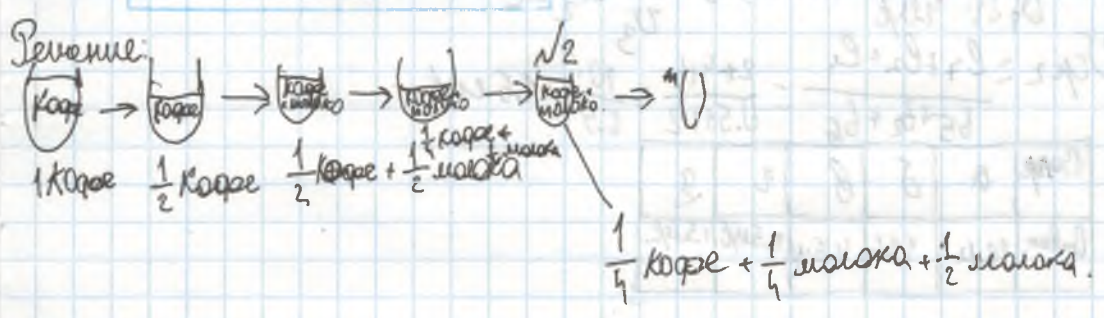 Решение:
√2
кофе → кофе → кофе + молоко → кофе молоко → кофе молоко →
1 кофе 1/2 кофе 1/2 кофе + 1/2 молока 1/4 кофе + 1/4 молока
1/4 кофе + 1/4 молока + 1/2 молока.